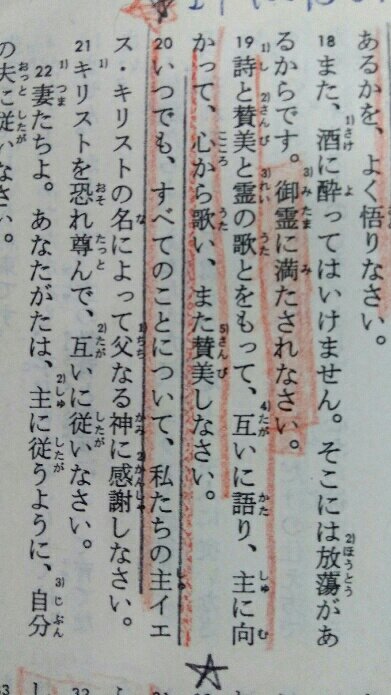 あるかを、よく悟りなさい。
18 また、酒に酔ってはいけません。そこには放蕩があ
るからです。御霊に満たされなさい。
19 詩と賛美と霊の歌とをもって、互いに語り、主に向
かって、心から歌い、また賛美しなさい。
20 いつでも、すべてのことについて、私たちの主イエ
ス・キリストの名によって父なる神に感謝しなさい。
21 キリストを恐れ尊んで、互いに従いなさい。
22 妻たちよ。あなたがたは、主に従うように、自分
の夫に従いなさい。